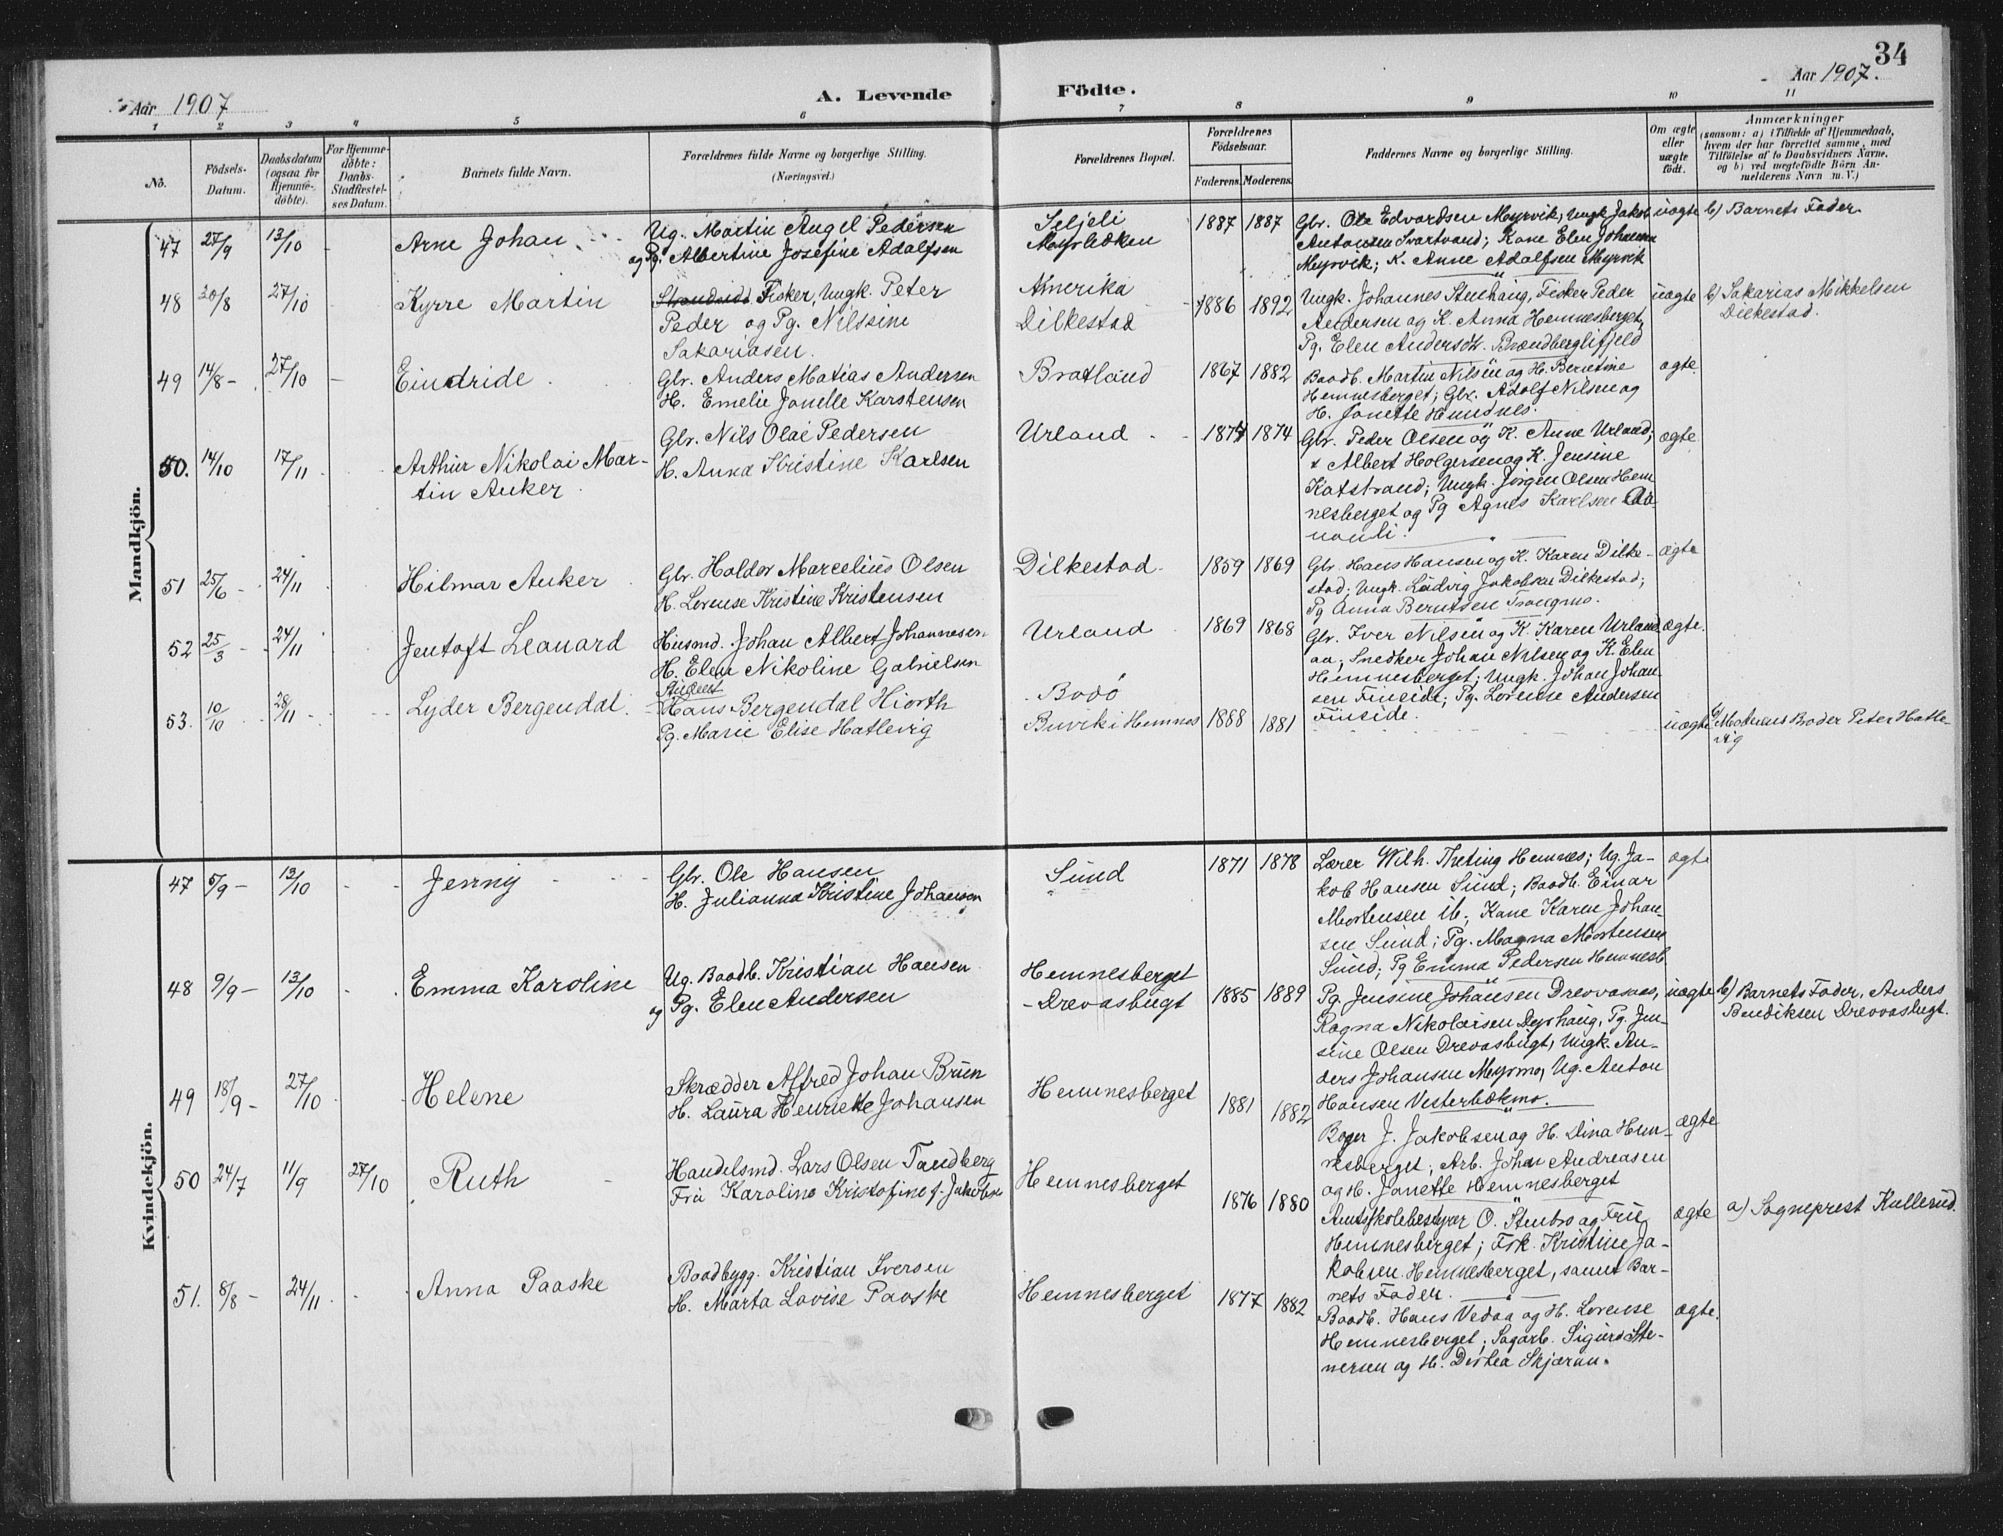 34
Aar 1907
A. Levende Födte.
Aar 1907.
1 2 3 4 5 6 7 8 9 10 11
No.
Födsels-
Datum.
Daabsdatum
(ogsaa for
Hjemme-
döbte).
For Hjemme-
döbte:
Daabs-
Stadfæstel-
ses Datum.
Barnets fulde Navn.
Forældrenes fulde Navne og borgerlige Stilling.
(Næringsvei.)
Forældrenes Bopæl.
Forældrenes
Födselsaar.
Faderens. Moderens.
Faddernes Navne og borgerlige Stilling.
Om ægte
eller
uægte
födt.
Anmærkninger
(saasom: a) i Tilfælde af Hjemmedaab,
hvem der har forrettet samme, med
Tilföielse af to Daabsvidners Navne,
og b) ved uægtefödte Börn An-
melderens Navn m. V.)
Mandkjön.
47 27/9 13/10 - Arne Johan
Ug. Martin Angel Pedersen
og Pg. Albertine Josefine Adolfsen
Seljeli
Myrbækken
1887 1887
Glr. Ole Edvardsen Myrvik, Ungk. Jakob
Antonsen Svartvand; Kone Elen Johansen
Myrvik; K. Anne Adolfsen Myrvik
uægte b) Barnets Fader
48 20/8 27/10 - Kyrre Martin
Fisker, Ungk. Peter
Peder og Pg. Nilssine
Sakariasen.
Amerika
Dilkestad
1886 1892
Ungk. Johannes Stenhaug, Fisker Peder
Andersen og K. Anna Hemnesberget,
Pg. Elen Andersdt. Brændberglifjeld
uægte b) Sakarias Mikkelsen
Dilkestad.
49 14/8 - 27/10 - Eindride
Glr. Anders Matias Andersen
H. Emelie Jonelle Karstensen
Bratland
1867 1882
Baadb. Martin Nilsen og H. Berntine
Hemnesberget; Glr. Adolf Nilsen og
H. Janette Hemnes.
ægte
50. 14/10 17/11 Arthur Nikolai Mar-
tin Anker
Glr. Nils Olai Pedersen
H. Anna Kristine Karlsen
Urland
1874 1874
Glr. Peder Olsen og K. Anne Urland;
Albert Holgersen og K. Jensine
Katstrand; Ungk. Jörgen Olsen Hem
nesberget og Pg Agnes Karlsen
ægte
51 25/6 - 24/11 Hilmar Anker
Glr. Haldor Marcelius Olsen
H. Lorense Kristine Kristensen
Dilkestad
1859 1869
Glr. Hans Hansen og K. Karen Dilke-
stad; Ungk. Ludvig Jakobsen Dilkestad;
Pg Anna Berntsen Trangmo.
ægte
52 25/3 - 24/11 Jentoft Leonard
Husmd. Johan Albert Johannesen
H. Elen Nikoline Gabrielsen
Urland
1869 1868
Glr. Iver Nilsen og K. Karen Urland
aa; Snedker Johan Nilsen og K. Elen
Hemnesberget; Ungk. Johan Johan-
sen Finside; Pg. Lorense Andersen
Finside.
ægte.
53. 10/10 28/11 - Lyder Bergendal.
Student
Hans Bergendal Hiorth
Pg. Marie Elise Hatlevig
Bodö
Buvik i Hemnes
1888 1881
uægte Moderens Broder Peter Hatle-
vig
Kvindekjön.
47 5/9 - 13/10 - - Jenny
Glr. Ole Hansen
H. Julianna Kristine Johansen
Sund
1871 1878
Lærer Wilh. Theting Hemnes; Ug. Ja-
kob Hansen Sund; Baadb. Einar
Mortensen ib.; Kone Karen Johan-
sen Sund; Pg. Magna Mortensen
Sund; Pg Emma Pedersen Hemnesb
ægte
48 9/9 - 13/10 - Emma Karoline
Ug. Baadb. Kristian Hansen
og Pg. Elen Andersen
Hemnesberget
- Drevasbugt
1885 1889
Pg. Jensine Johansen Drevvasaas,
Ragna Nikolaisen Dyrhaug, Pg. Jen-
sine Olsen Drevasbugt, Ungk. An-
ders Johansen Myrmo, Ug. Anton
Hansen Vesterbækmo.
uægte b) Barnets Fader, Anders
Bendiksen Drevvasbugt.
49 18/9 - 27/10 Helene
Skrædder Alfred Johan Brun
H. Laura Henrikke Johansen
Hemnesberget
1881 1882
Bager J. Jakobsen og H. Dina Hem-
nesberget; Arb. Johan Andreasen
og H. Janette Hemnesberget
ægte
50 24/7 11/9 27/10 Ruth
Handelsmd. Lars Olsen Tandberg
Fru Karoline Kristofine f. Jakobsen
Hemnesberget
1876 1880
Amtsskolebestyrer O. Stenbro og Frue
Hemnesberget; Frk. Kristine Ja-
kobsen Hemnesberget, samt Bar-
nets Fader.
ægte a) Sogneprest Kullerud.
51. 8/8 - 24/11 - Anna Paaske
Baadbygg. Kristian Iversen
H. Marta Lovise Paaske
Hemnesberget
1877 1882
Baadb. Hans Vedaa og H. Lorense
Hemnesberget; Sagarb. Sigurd Ste-
nersen og H. Dortea Skjæran.
ægte.